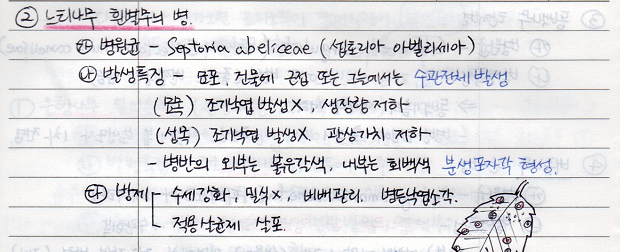 ② 느티나무 흰별무늬 병.
㉮ 병원균 - Septoria abeliceae (셉토리아 아벨리세아)
㉯ 발생특징 - 묘포, 건물에 근접 또는 그늘에서는 수관전체 발생
(묘목) 조기낙엽 발생X, 생장량 저하
(성목) 조기낙엽 발생X, 관상가치 저하
- 병반의 외부는 붉은갈색, 내부는 회백색 분생포자각 형성.
㉰ 방제 - 수세강화, 밀식X, 비배관리, 병든낙엽소각.
- 적용살균제 살포.